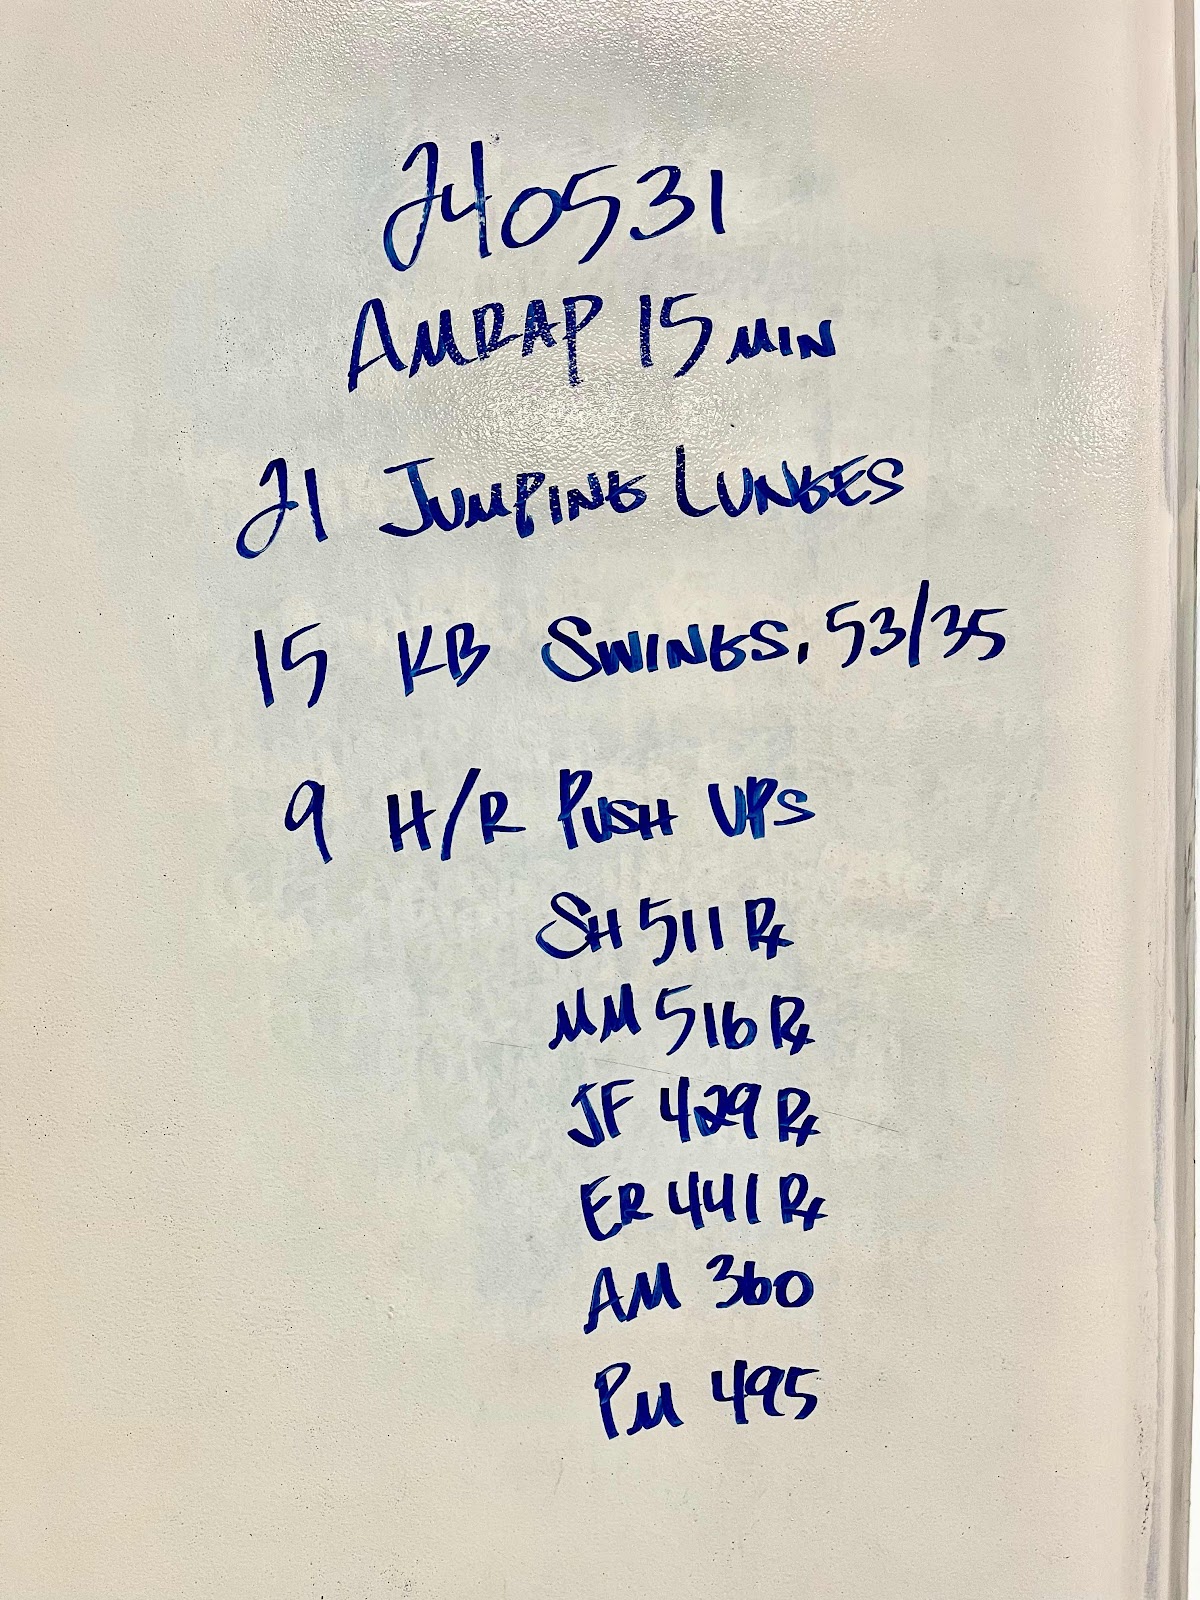 240531
AMRAP 15 MIN
21 JUMPING LUNGES
15 KB SWINGS, 53/35
9 H/R PUSH UPS
SH 511 Rx
MM 516 Rx
JF 429 Rx
ER 441 Rx
AM 360
PM 495